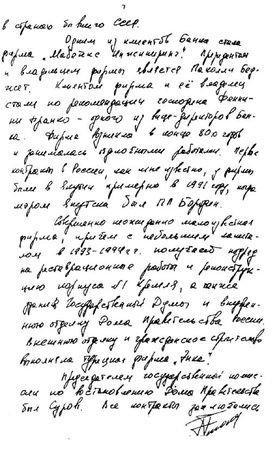 в странах бывшего СССР.
Одним из клиентов банка стала
фирма "Мабетекс Инжиниринг". Президентом
и владельцем фирмы является Паколли Бед-
жет. Клиентом фирма и её владелец
стали по рекомендации господина Фенни-
ни Франко - одного из вице-директоров Бан-
ка. Фирма возникла в конце 80х годов
и занималась подобными работами. Первые
контракты в России, как мне известно, у фирмы
были в Якутии примерно в 1991 году, когда
мэром Якутска был П.П. Бородин.
Совершенно неожиданно малоизвестная
фирма, причем с небольшим капита-
лом в 1993-1994 г. получает подряд
на реставрационные работы и реконструк-
цию корпуса №1 Кремля, а также
здания Государственной Думы и внутрен-
нюю отделку Дома Правительства России.
Внешнюю отделку и гражданское строительство
выполняла турецкая фирма "Энка".
Председателем государственной комис-
сии по восстановлению Дома Правительства
был Суров. Все контракты заключались